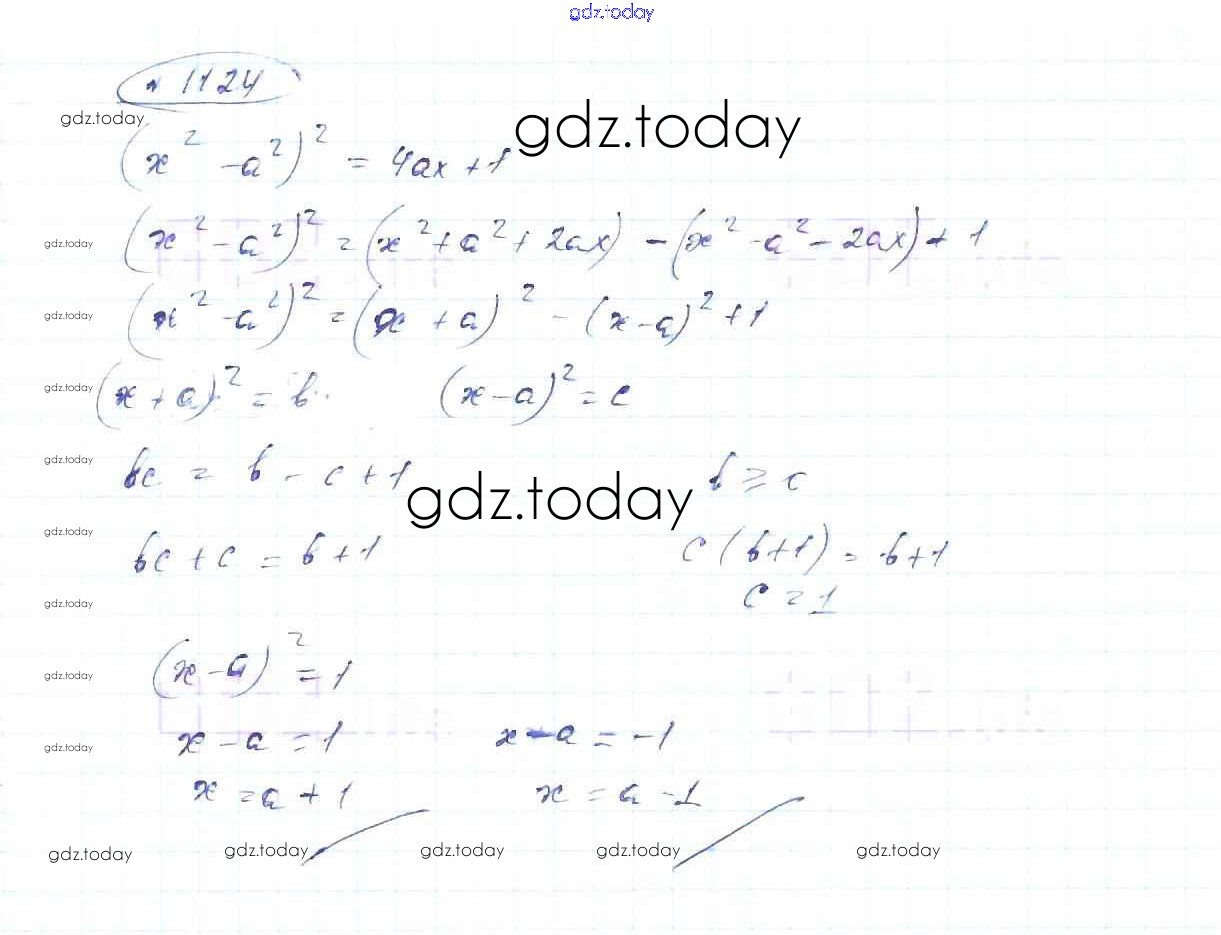 gdz.today
№ 1124
gdz.today
gdz.today
(x² - a²)² = 4ax + 1
gdz.today (x² - a²)² = (x² + a² + 2ax) - (x² - a² - 2ax) + 1
gdz.today (x² - a²)² = (x + a)² - (x - a)² + 1
gdz.today (x + a)² = b. (x - a)² = c
gdz.today bc = b - c + 1 b ≥ c
gdz.today
gdz.today bc + c = b + 1 c (b + 1) = b + 1
gdz.today c = 1
gdz.today (x - a)² = 1
gdz.today x - a = 1 x - a = -1
x = a + 1 x = a - 1
gdz.today gdz.today gdz.today gdz.today gdz.today